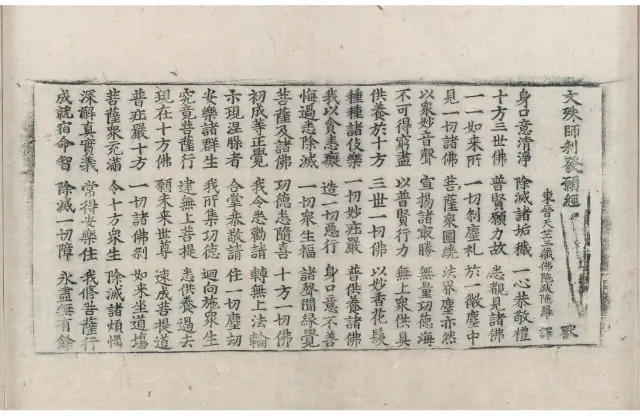 文殊師利發願經 獸
東晉天竺三藏佛陁跋陁羅 譯
身口意清淨 除滅諸垢穢 一心恭敬禮
十方三世佛 普賢願力故 悉覩見諸佛
一一如來所 一切刹塵礼 於一微塵中
見一切諸佛 菩薩衆圍繞 法界塵亦然
以衆妙音聲 宣揚諸最勝 無量功德海
不可得窮盡 以普賢行力 無上衆供具
供養於十方 三世一切佛 以妙香花鬘
種種諸伎樂 一切妙莊嚴 普供養諸佛
我以貪恚癡 造一切惡行 身口意不善
悔過悉除滅 一切衆生福 諸聲聞緣覺
菩薩及諸佛 功德悉隨喜 十方一切佛
初成等正覺 我今悉勸請 轉無上法輪
示現涅槃者 合掌恭敬請 住一切塵劫
安樂諸群生 我所集功德 迴向施衆生
究竟菩薩行 逮無上菩提 悉供養過去
現在十方佛 願未來世尊 速成菩提道
普莊嚴十方 一切諸佛刹 如來坐道場
菩薩衆充滿 令十方衆生 除滅諸煩惱
深解真實義 常得安樂住 我修菩薩行
成就宿命智 除滅一切障 永盡無有餘